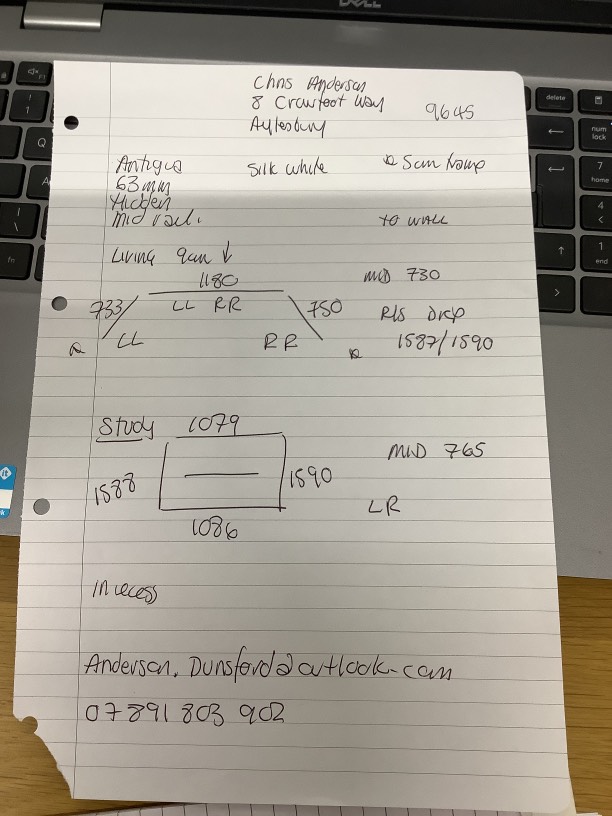 Chris Anderson
8 Crowfoot Way 9645
Aylesbury
Antigua Silk White
63mm
Hidden
Mid rail. TO WALL
Living 9am ↓
1180 MID 730
733 LL RR 750 R/S Drop
LL RR 1587/1590
Study 1079
MID 765
1588 1590
LR
1086
In recess
Anderson.Dunsford@outlook.com
07891 803 902
DELL
delete
num lock
7 home
4
1 end
fn
Q
A